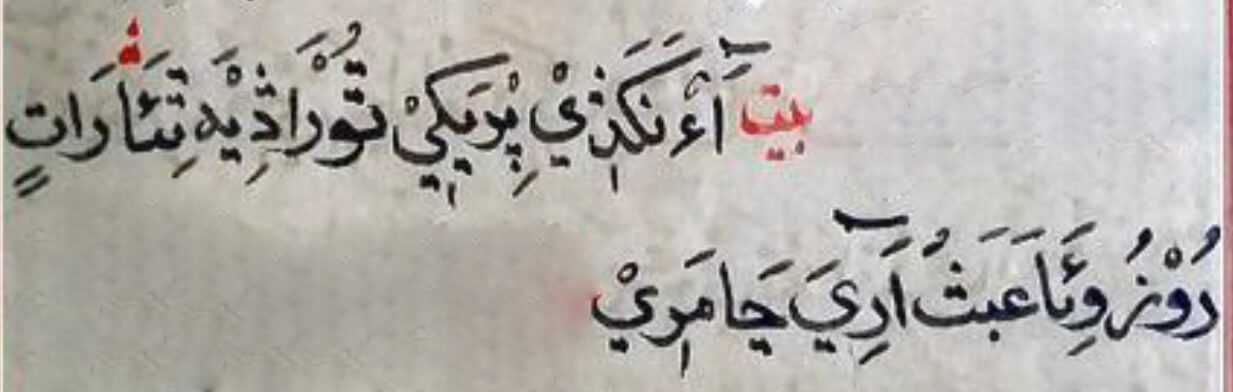 بيت آءَ نَكَذِيْ پِرِيَكِيْ تُوْرَاذِيْهِ تِئَارَاتٍ
رُوْزُ وِئَا عَبَثُ آرِيَ جَا مَرِيْ